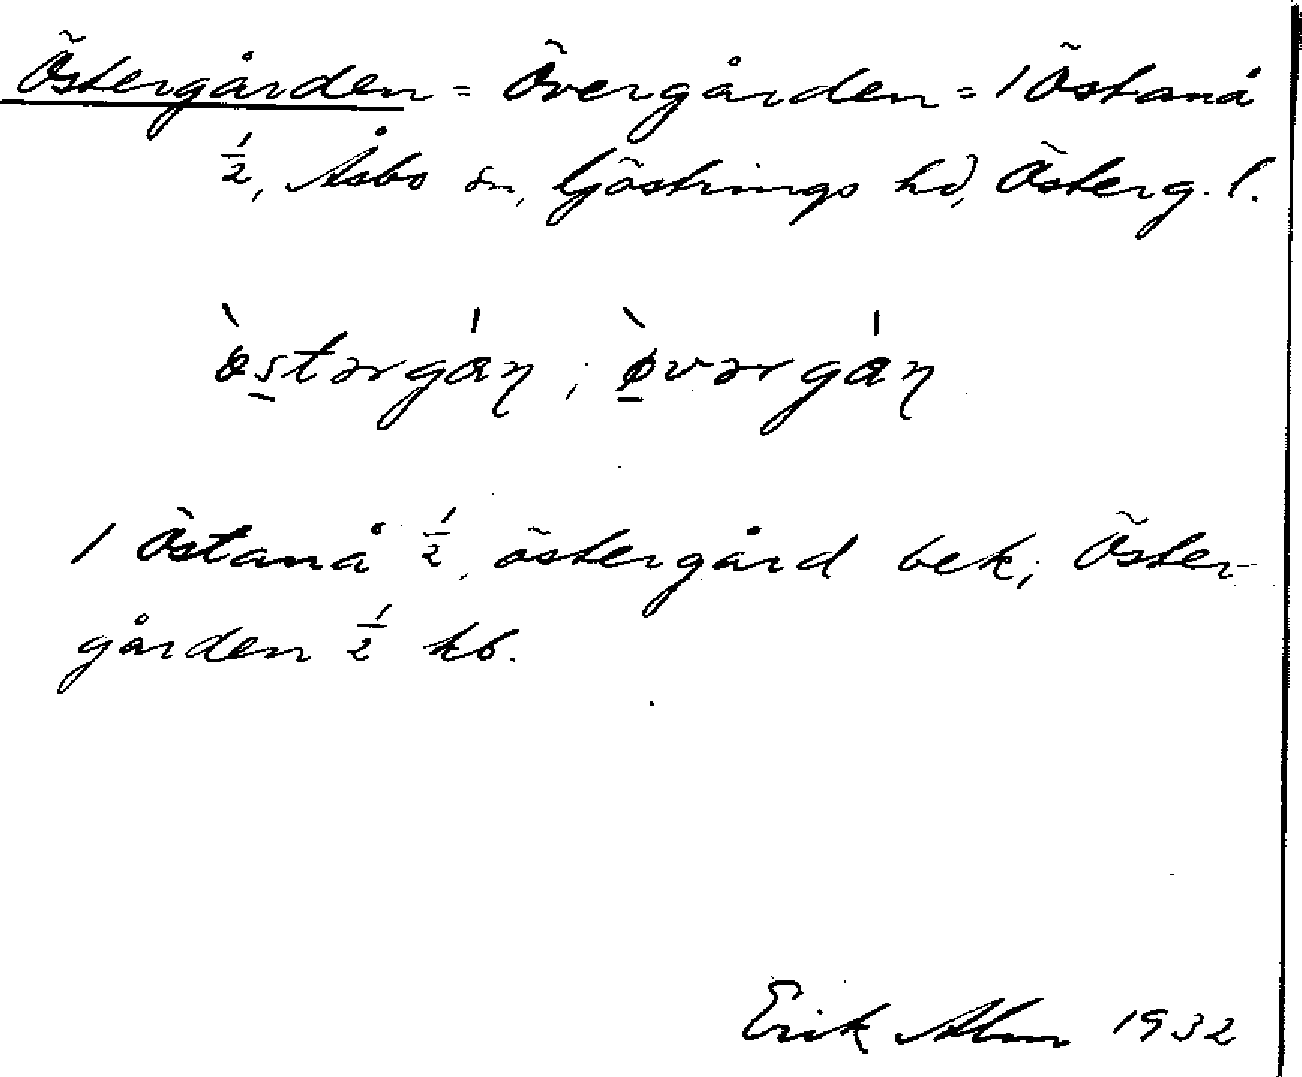 Östergården = Övergården = 1 Östanå
1/2, Åsbo sn, Göstrings hd, Österg. l.
1 Östanå 1/2, östergård bek; Öster-
gården 1/2 kb.
Erik Alm 1932